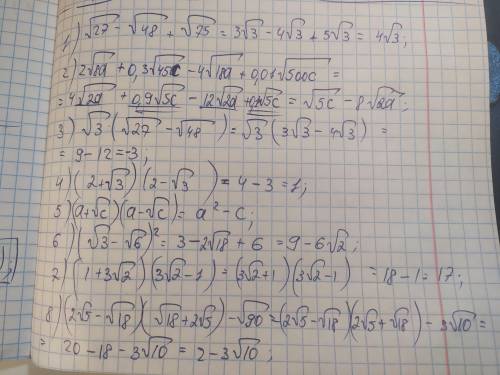 1) √27 - √48 + √75 = 3√3 - 4√3 + 5√3 = 4√3;
2) 2√8a + 0,3√45c - 4√18a + 0,01√500c =
= 4√2a + 0,9√5c - 12√2a + 0,1√5c = √5c - 8√2a;
3) √3 (√27 - √48) = √3 (3√3 - 4√3) =
= 9 - 12 = -3;
4) (2+√3)(2-√3) = 4 - 3 = 1;
5) (a+√c)(a-√c) = a² - c;
6) (√3 - √6)² = 3 - 2√18 + 6 = 9 - 6√2;
7) (1+3√2)(3√2-1) = (3√2+1)(3√2-1) = 18 - 1 = 17;
8) (2√5 - √18)(√18 + 2√5) - √90 = (2√5 - √18)(2√5 + √18) - 3√10 =
= 20 - 18 - 3√10 = 2 - 3√10;